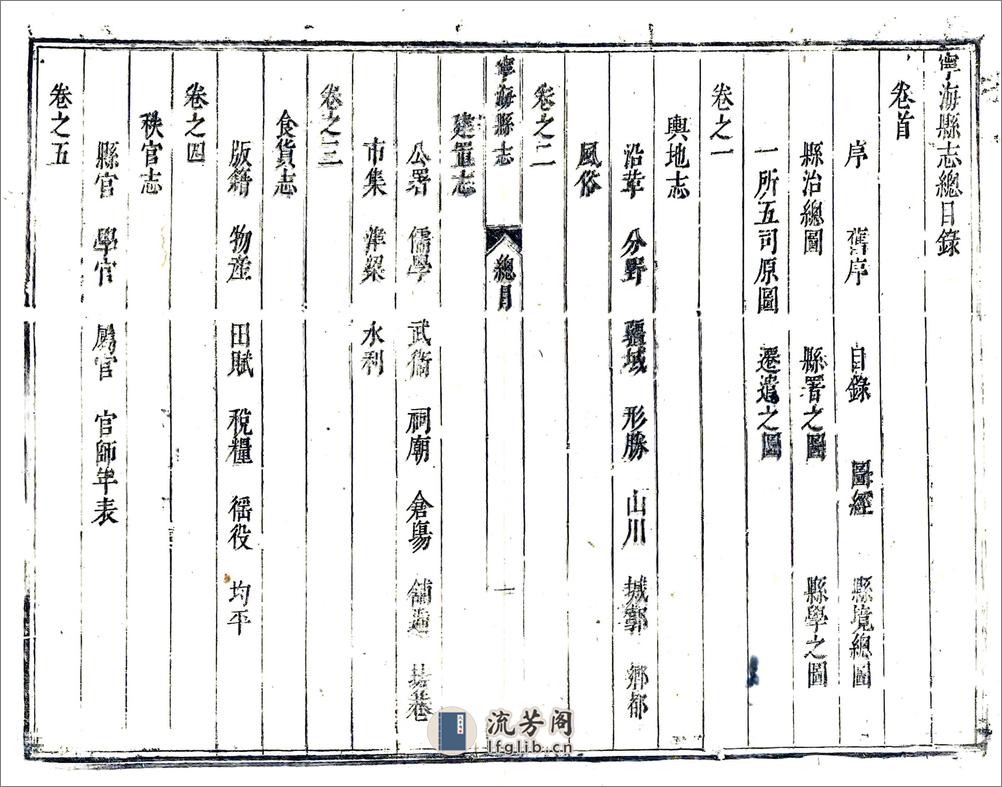 寧海縣志總目錄
卷首
序 舊序 目錄 圖經 縣境總圖
縣治總圖 縣署之圖 縣學之圖
一所五司原圖 遷遣之圖
卷之一
輿地志
沿革 分野 疆域 形勝 山川 城郭 鄉都
風俗
卷之二
寧海縣志 總目 一
建置志
公署 儒學 武衞 祠廟 倉場 舖遞 坊巷
市集 津梁 水利
卷之三
食貨志
版籍 物產 田賦 稅糧 徭役 均平
卷之四
秩官志
縣官 學官 屬官 官師年表
卷之五
流芳阁
lfglib.cn